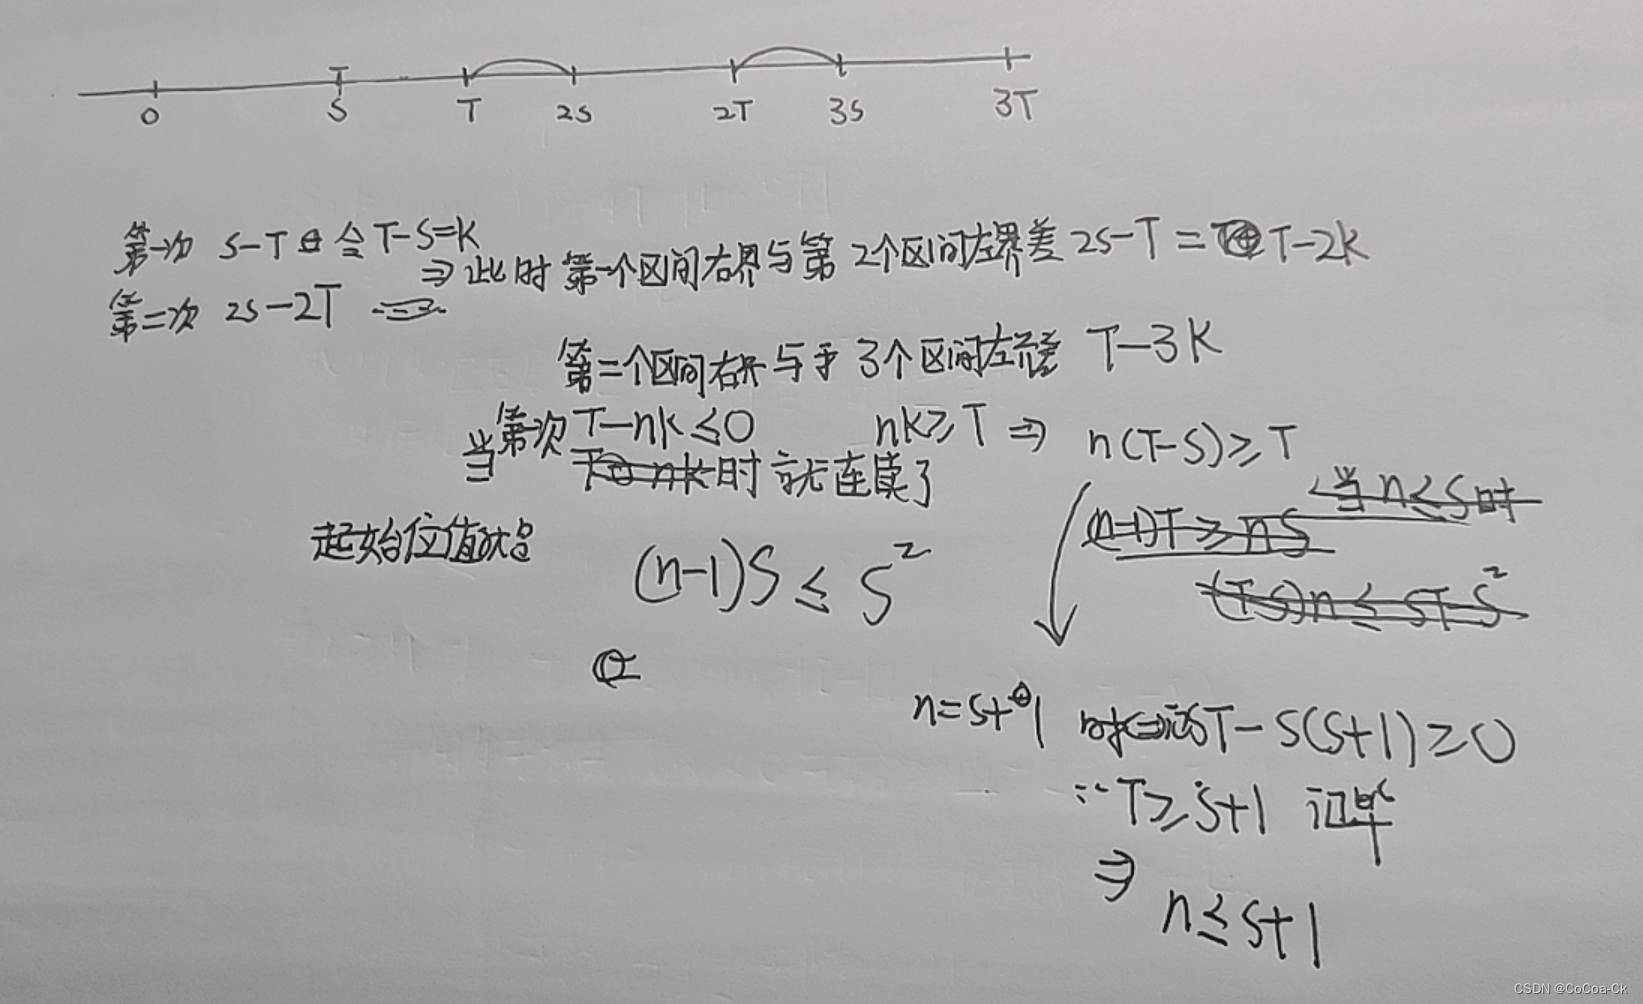 0 S T 2S 2T 3S 3T
第一次 S-T 令T-S=K
⇒此时第一个区间右界与第2个区间左界差 2S-T = T-2K
第二次 2S-2T
第二个区间右界与于3个区间左 T-3K
当第n次 T-nk≤0 nk≥T ⇒ n(T-S)≥T
时就连续了
当n≤S时
(n-1)T≥nS
起始位值就是 (n-1)S ≤ S²
(T-S)n≤ST-S²
n=S+1 时 ST-S(S+1)≥0
∵T≥S+1 证毕
⇒
n≤S+1
CSDN @CoCoa-Ck